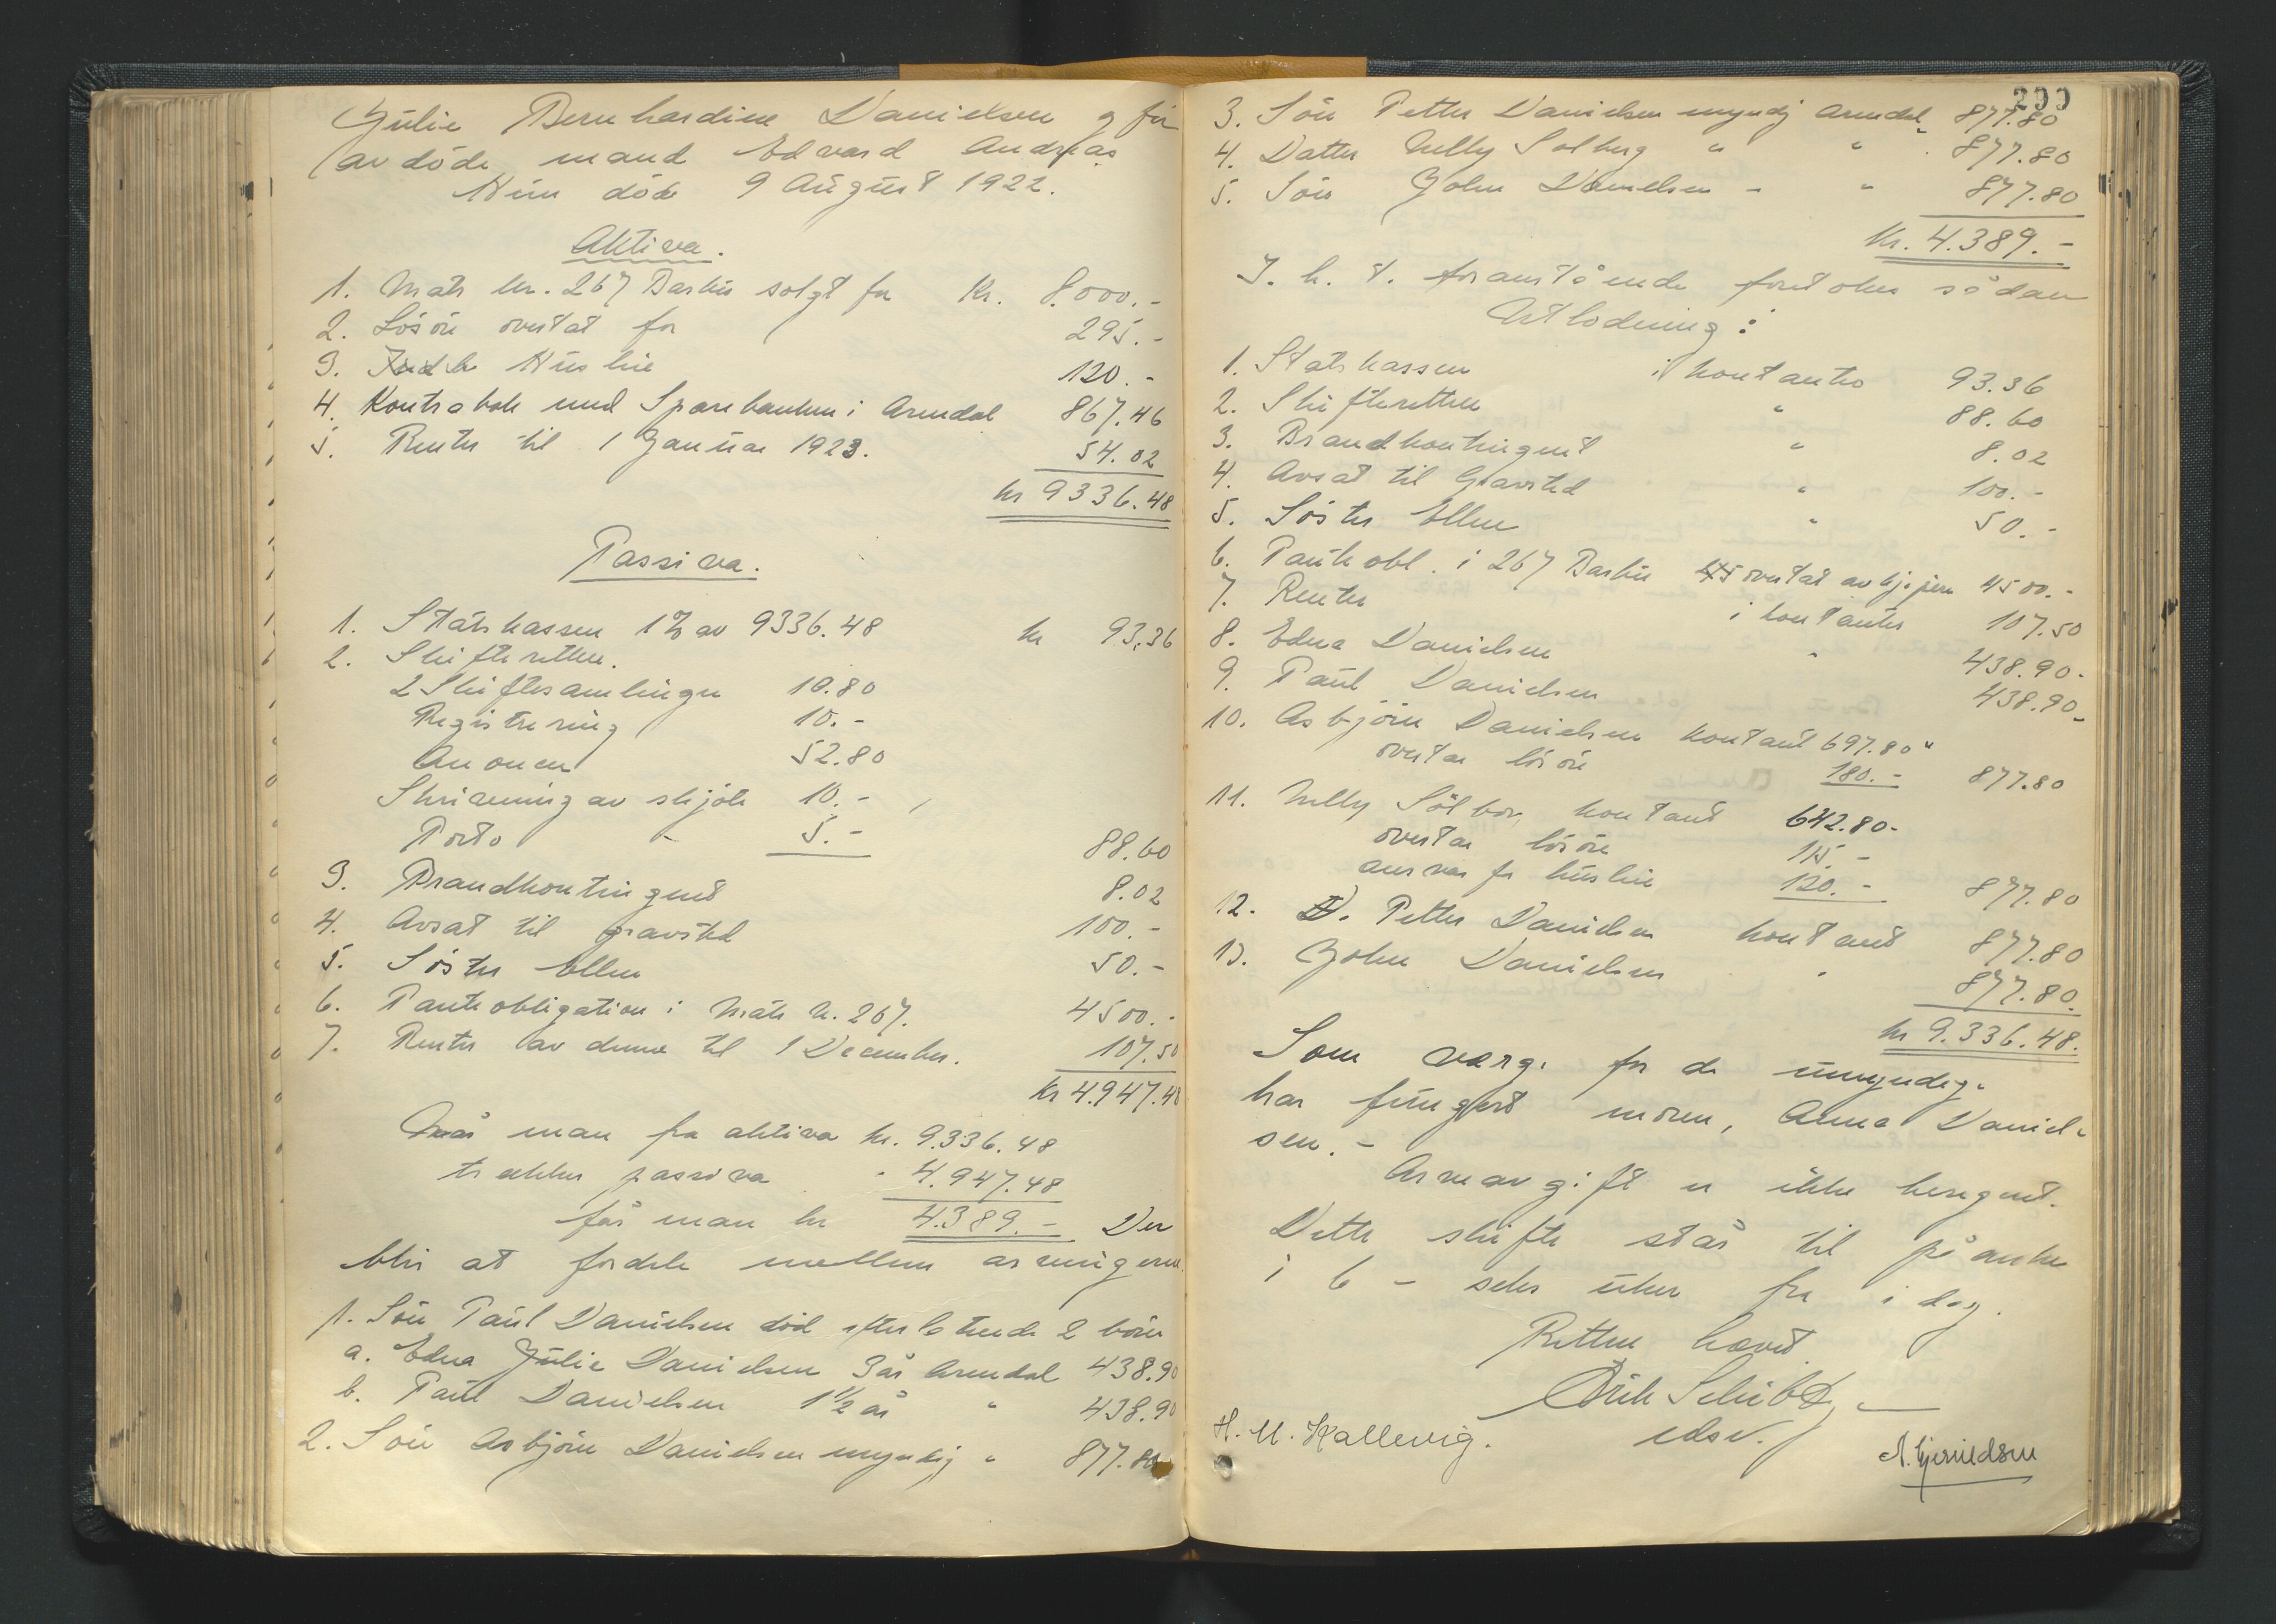 Julie Bernhardine Danielsen g for
avdöde mand Edvard Andreas
Hun döde 9 August 1922.
Aktiva.
1. Matr nr. 267 Barbu solgt for Kr. 8.000.-
2. Lösöre overtat for 295.-
3. Husleie 120.-
4. Kontrabok med Sparebanken i Arendal 867.46
5. Renter til 1 Januar 1923. 54.02
kr 9336.48
Passiva.
1. Statskassen 1% av 9336.48 kr 93.36
2. Skifteretten.
2 Skiftesamlinger 10.80
Registrering 10.-
Anoncer 52.80
Skrivning av skjöte 10.-
Porto - 5.- 88.60
3. Brandkontingent 8.02
4. Avsat til gravsted 100.-
5. Söster Ellen 50.-
6. Panteobligation i Matr n. 267. 4500.-
7. Renter av denne til 1 December. 107.50
Kr 4.947.48
Når man fra aktiva kr. 9.336.48
trækker passiva " 4.947.48
får man kr 4.389.- Der
blir at fordele mellem arvingerne.
1. Sön Paul Danielsen död efterlatende 2 börn
a. Edna Julie Danielsen 3 år Arendal 438.90
b. Paul Danielsen 1 1/2 år " 438.90
2. Sön Asbjörn Danielsen myndig " 877.80
200
3. Sön Petter Danielsen myndig Arendal 877.80
4. Datter Nelly Solberg " " 877.80
5. Sön John Danielsen - " 877.80
Kr. 4.389.-
I. h. t. foranstående foretokes sådan
Utlodning:
1. Statskassen i kontanter 93.36
2. Skifteretten " 88.60
3. Brandkontingent " 8.02
4. Avsat til Gravsted " 100.-
5. Söster Ellen " 50.-
6. Panteobl. i 267 Barbu overtat av kjöperen 4500.-
7. Renter i kontanter 107.50
8. Edna Danielsen " 438.90.
9. Paul Danielsen 438.90
10. Asbjörn Danielsen kontant 697.80"
overtar lösöre 180.- 877.80
11. Nelly Solberg kontant 642.80-
overtar lösöre 115.-
ansvar for husleie 120.- 877.80
12. Petter Danielsen kontant 877.80
13. John Danielsen " 877.80.
kr 9.336.48.
Som værge for de umyndige
har fungert moren, Anna Daniel-
sen.-
Arveavgift er ikke beregnet.
Dette skifte står til påanke
i 6 - seks uker fra i dag.
Retten hævet
edsv.
H. M. Kallevig.